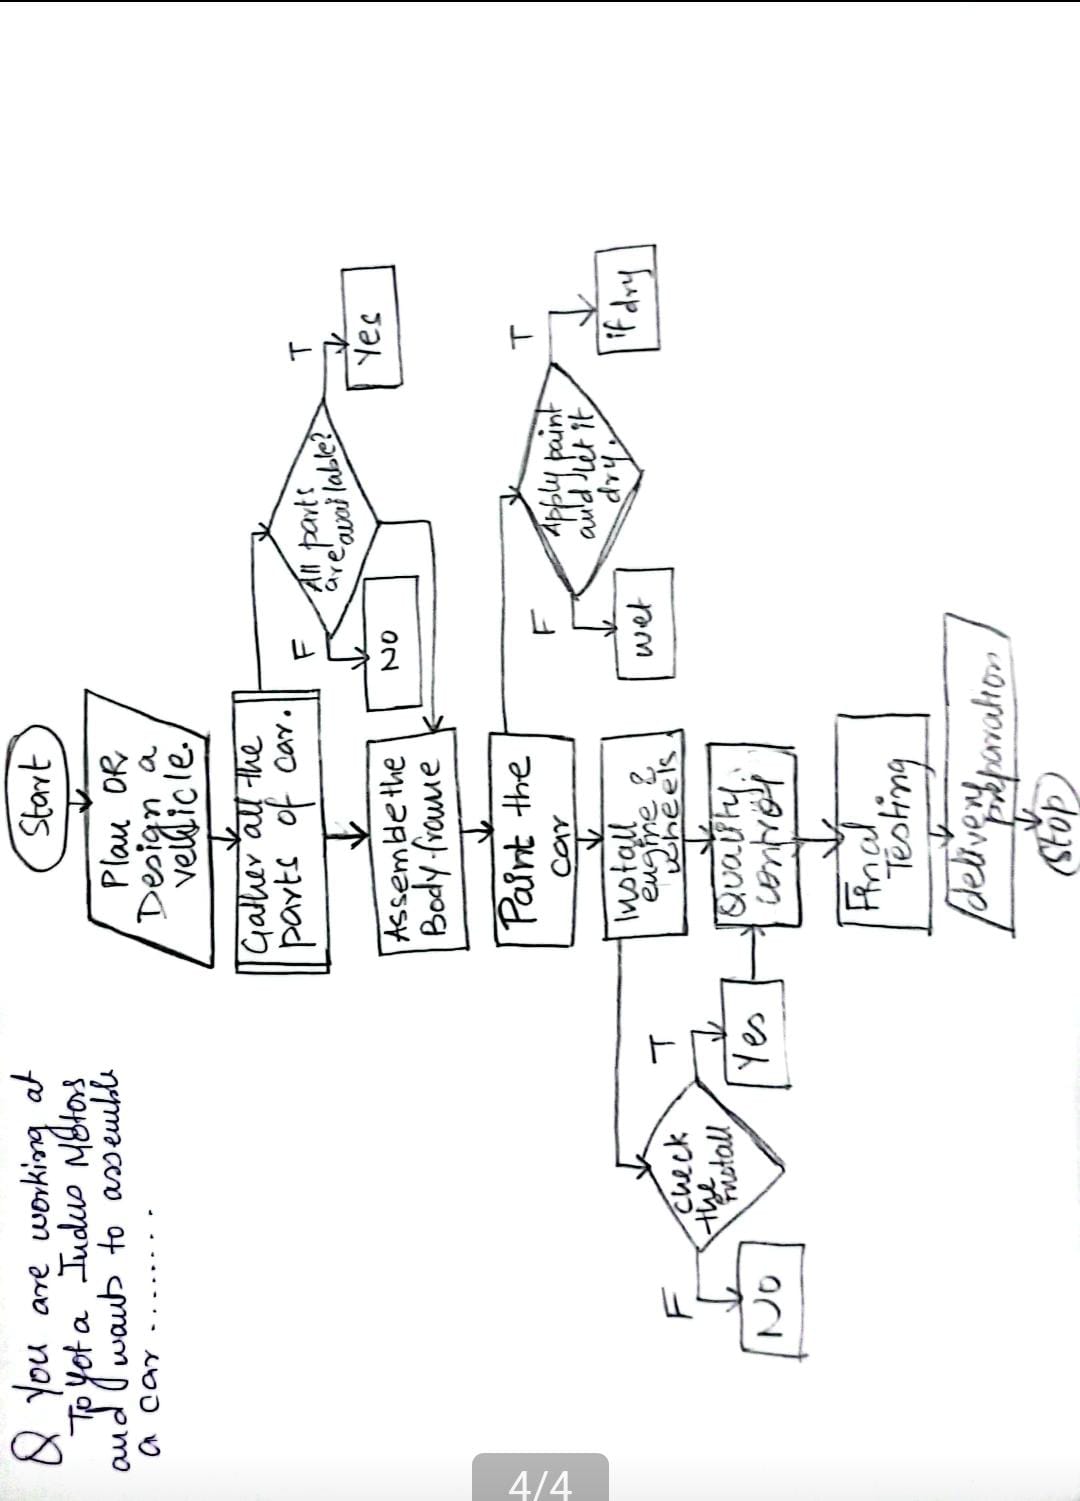 Q you are working at
Toyota Indus Motors
and wants to assemble
a car ........
Start
Plan OR
Design a
vehicle.
Gather all the
parts of car.
All parts
are available?
F
T
No
Yes
Assemble the
Body frame
Paint the
car
Apply paint
and let it
dry.
F
T
wet
if dry
Install
engine &
wheels.
check
the
install
F
T
No
Yes
Quality
control
Final
Testing
delivery
preparation
Stop
4/4